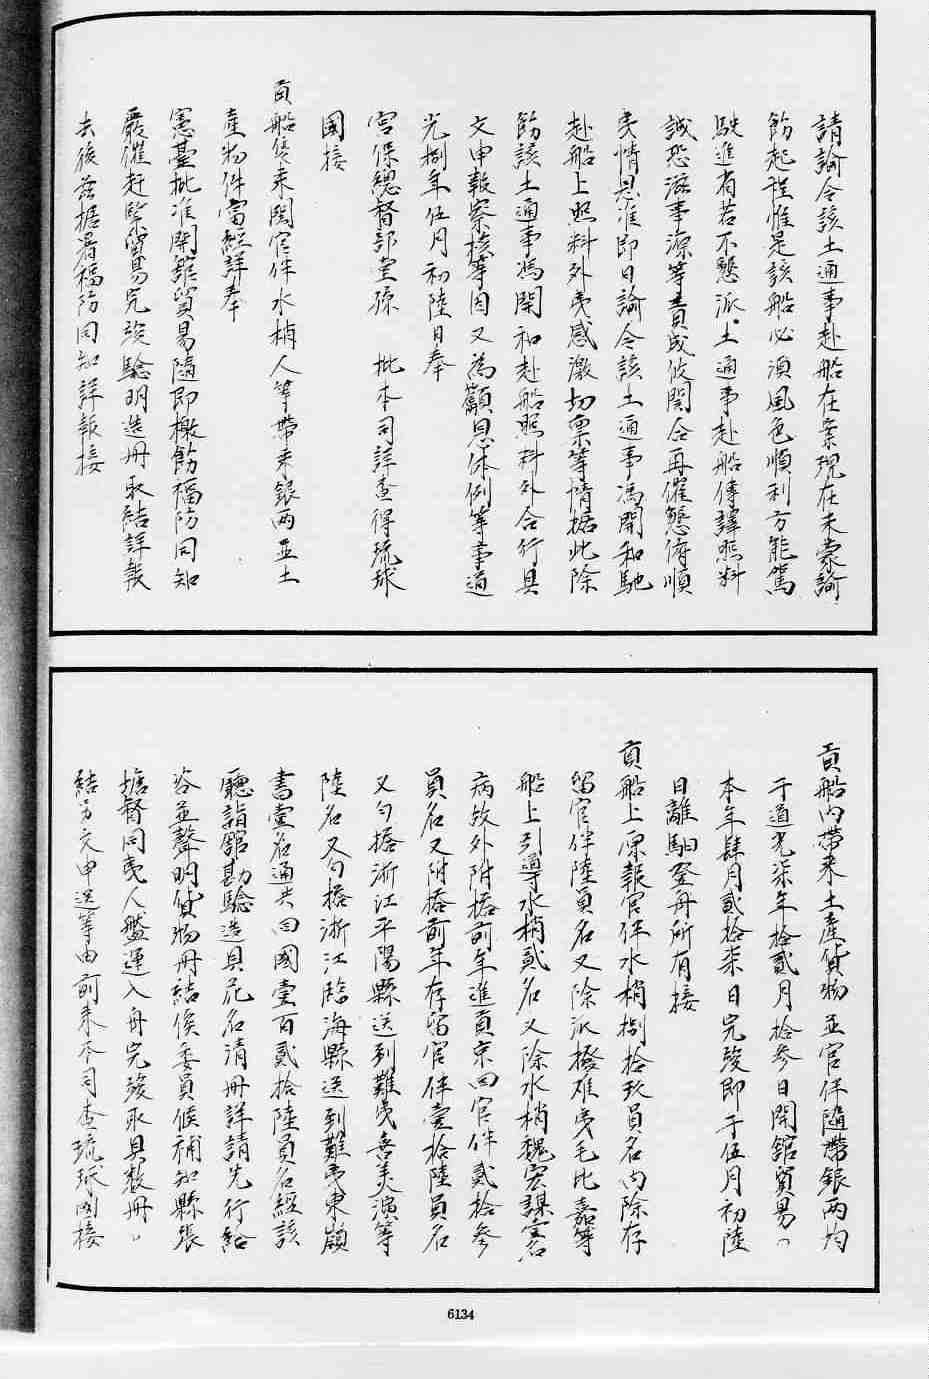 請諭令該土通事赴船在案現在未蒙諭
飭起程惟是該船必須風色順利方能駕
駛進省若不懇派土通事赴船傳譯照料
誠恐滋事源等責成攸関合再催懇俯順
夷情恩准即日諭令該土通事馮開和馳
赴船上照料外夷感激切禀等情據此除
飭該土通事馮開和赴船照料外合行具
文申報察核等因又為籲恩休例等事道
光捌年伍月初陸日奉
宮保總督部堂孫　批本司詳查得琉球
國接
貢船隻来閩官伴水梢人等帶来銀両並土
產物件當經詳奉
憲臺批准開舘貿易隨即檄飭福防同知
嚴催赶緊貿易完竣驗明造冊取結詳報
去後茲據署福防同知詳報接
貢船内帶来土產貨物並官伴隨帶銀両均
于道光柒年拾貳月拾参日開舘貿易
本年肆月貳拾柒日完竣即于伍月初陸
日離駅登舟所有接
貢船上原報官伴水梢捌拾玖員名内除存
留官伴陸員名又除派撥难夷毛比嘉等
船上引導水梢貳名又除水梢魏宏謀壹名
病故外附搭前年進貢京回官伴貳拾参
員名又附搭前年存留官伴壹拾陸員名
又匀搭浙江平陽縣送到難夷喜美演等
陸名又匀搭浙江臨海縣送到難夷東嶺
書壹名通共回國壹百貳拾陸員名經該
廳詣舘勘驗造具花名清冊詳請先行給
咨並聲明貨物冊結俟委員候補知縣張
搪督同夷人艦運入舟完竣取具裝冊
結另文申送等由前来本司查琉球國接
6134